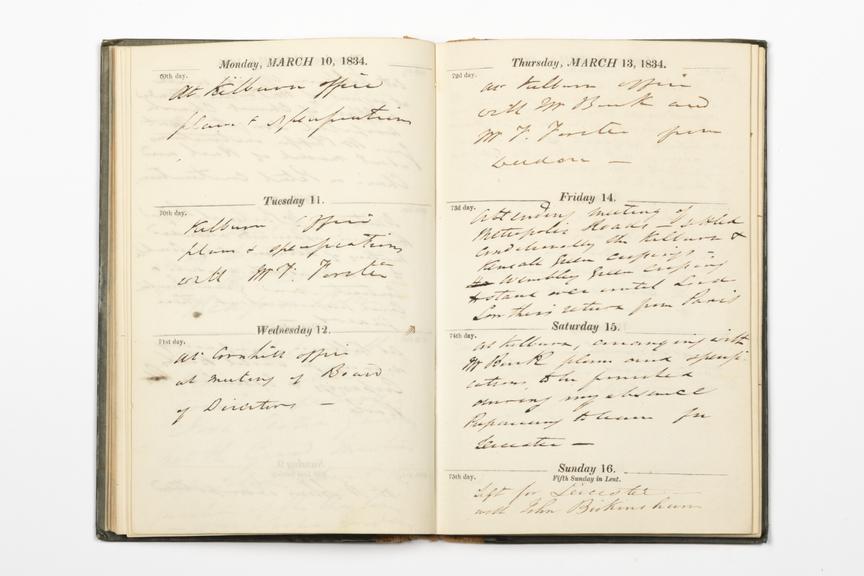 Monday, MARCH 10, 1834.
69th day.
At Kilburn office
plans & specifications
Tuesday 11.
70th day.
Kilburn office
plans & specifications
with Mr F. Forster
Wednesday 12.
71st day.
at Cornhill office
at meeting of Board
of Directors —
Thursday, MARCH 13, 1834.
72d day.
at Kilburn office
with Mr Buck and
Mr F. Forster from
London —
Friday 14.
73d day.
Attending meeting of
Metropolis Roads — settled
Conditionally the Kilburn &
Kensale Green crossings —
Wembley Green crossing
to stand over until Lord
Lowther's return from Paris
Saturday 15.
74th day.
At Kilburn, arranging with
Mr Buck plans and specifi-
cations, to be finished
during my absence
Preparing to leave for
Leicester —
Sunday 16.
Fifth Sunday in Lent.
75th day.
Left for Leicester —
with John Birkinshaw